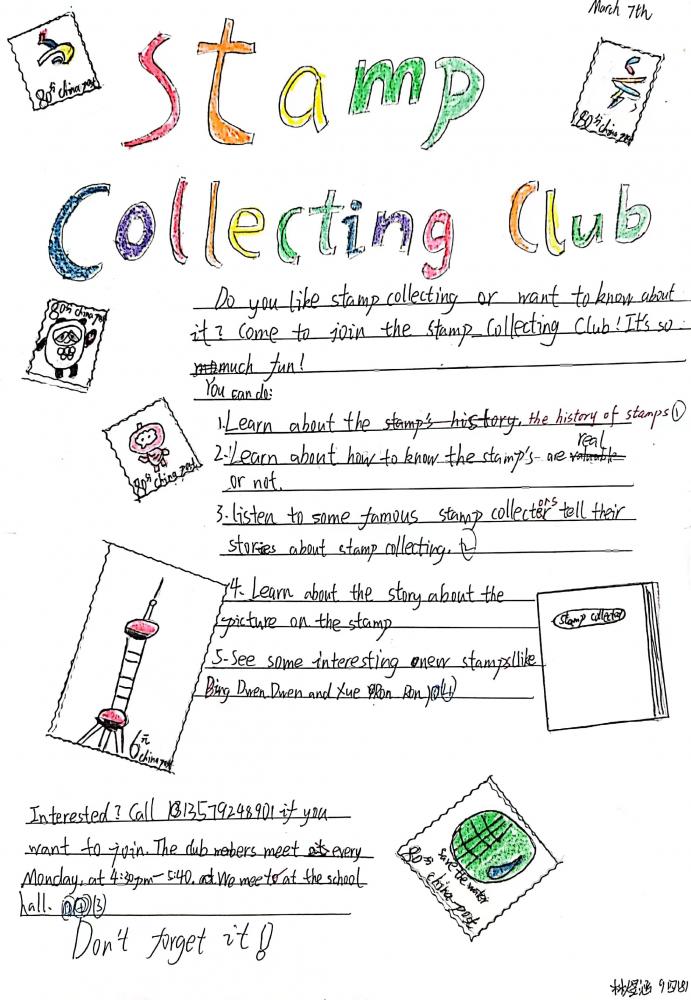 March 7th
80分 china post
Stamp
80分 china post
Collecting Club
80分 china post
Do you like stamp collecting or want to know about
it? Come to join the stamp Collecting Club! It's so
much fun!
You can do:
1. Learn about the stamp's history. the history of stamps ①
2. Learn about how to know the stamp's are valuable real
or not.
80分 china post
3. listen to some famous stamp collectors tell their
stories about stamp collecting. ②
4. Learn about the story about the
picture on the stamp
stamp collector
5. See some interesting new stamps(like
Bing Dwen Dwen and Xue Ron Ron)
6元
china post
Interested? Call 13579248901 if you
want to join. The club members meet every
Monday, at 4:30pm-5:40. We meet at the school
hall.
Don't forget it!
save the water
80分 china post